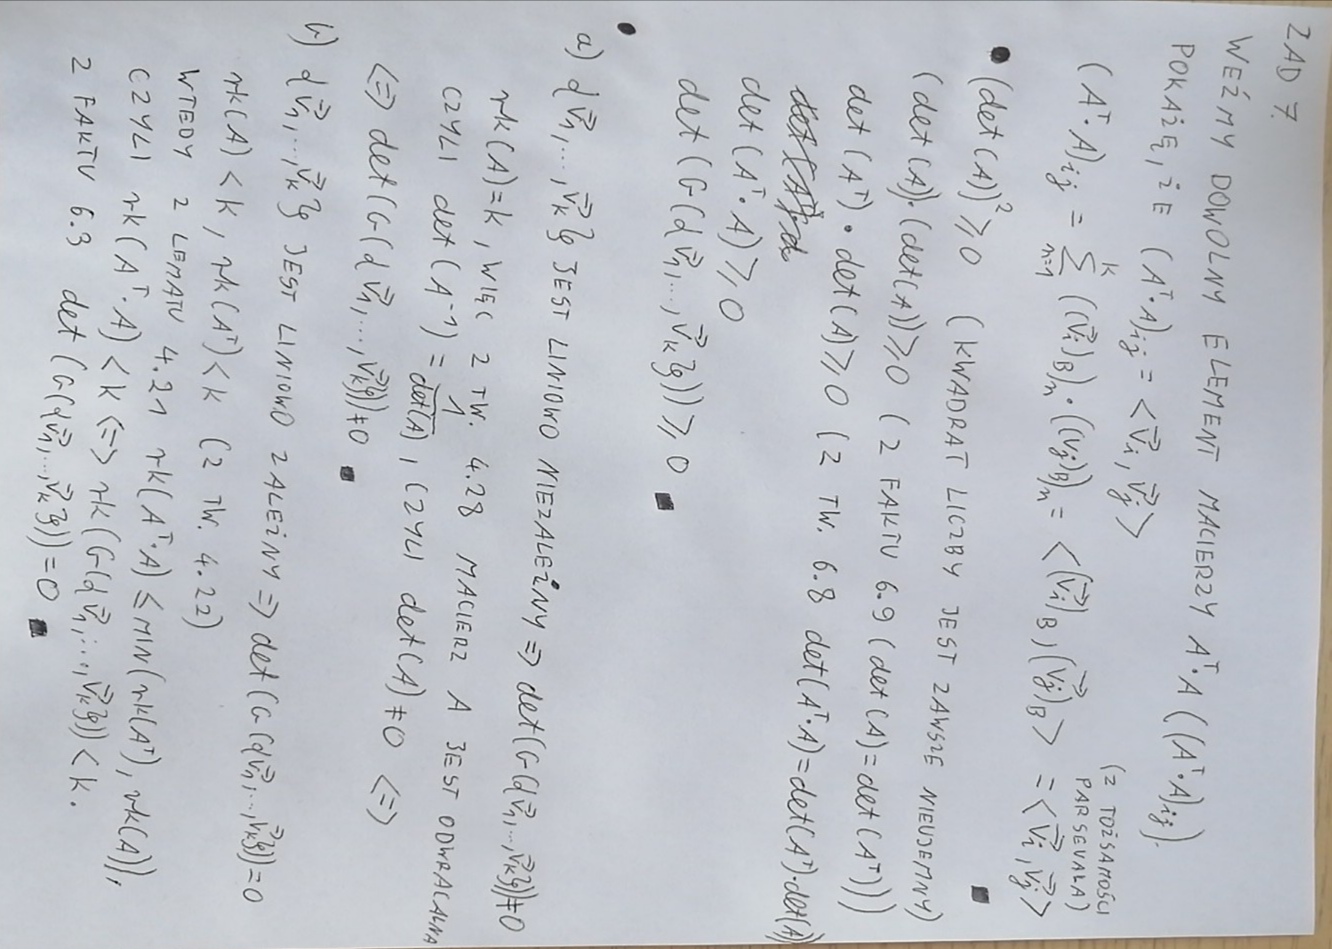 ZAD 7.
WEŹMY DOWOLNY ELEMENT MACIERZY Aᵀ·A ((Aᵀ·A)ᵢⱼ).
POKAŻĘ, ŻE (Aᵀ·A)ᵢⱼ = <v⃗ᵢ, v⃗ⱼ>
(Aᵀ·A)ᵢⱼ = ∑ₙ₌₁ᴷ ((v⃗ᵢ)_B)ₙ·((vⱼ)_B)ₙ = <(v⃗ᵢ)_B, (v⃗ⱼ)_B> (Z TOŻSAMOŚCI PARSEVALA) = <v⃗ᵢ, v⃗ⱼ>
■
• (det(A))² ⩾ 0 (KWADRAT LICZBY JEST ZAWSZE NIEUJEMNY)
(det(A))·(det(A)) ⩾ 0 (Z FAKTU 6.9 (det(A)=det(Aᵀ)))
det(Aᵀ)·det(A) ⩾ 0 (Z TW. 6.8 det(Aᵀ·A)=det(Aᵀ)·det(A))
det(Aᵀ·A) ⩾ 0
det(G({v⃗₁,...,v⃗ₖ})) ⩾ 0 ■
•
a) {v⃗₁,...,v⃗ₖ} JEST LINIOWO NIEZALEŻNY ⇒ det(G({v⃗₁,...,v⃗ₖ})) ≠ 0
rk(A)=k, WIĘC Z TW. 4.28 MACIERZ A JEST ODWRACALNA
CZYLI det(A⁻¹) = 1/det(A), CZYLI det(A) ≠ 0 ⇔
⇔ det(G({v⃗₁,...,v⃗ₖ})) ≠ 0 ■
b) {v⃗₁,...,v⃗ₖ} JEST LINIOWO ZALEŻNY ⇒ det(G({v⃗₁,...,v⃗ₖ})) = 0
rk(A) < k, rk(Aᵀ) < k (Z TW. 4.22)
WTEDY Z LEMATU 4.21 rk(Aᵀ·A) ≤ MIN(rk(Aᵀ), rk(A)),
CZYLI rk(Aᵀ·A) < k ⇔ rk(G({v⃗₁,...,v⃗ₖ})) < k.
Z FAKTU 6.3 det(G({v⃗₁,...,v⃗ₖ})) = 0 ■